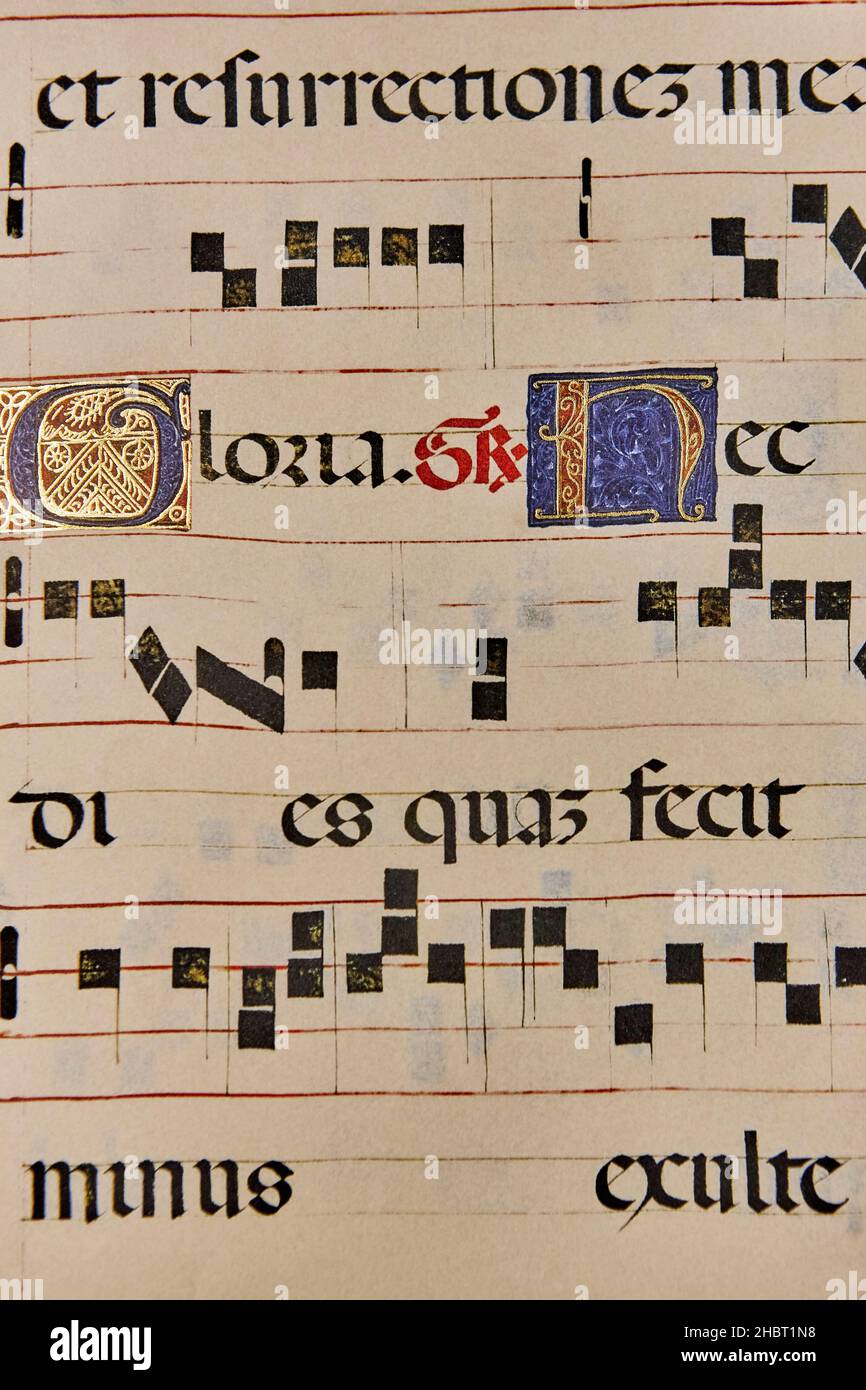 et resurrectionez mea
Gloria. GR. Hec
di es quaz fecit
minus exulte
alamy
Image ID: 2HBT1N8
www.alamy.com